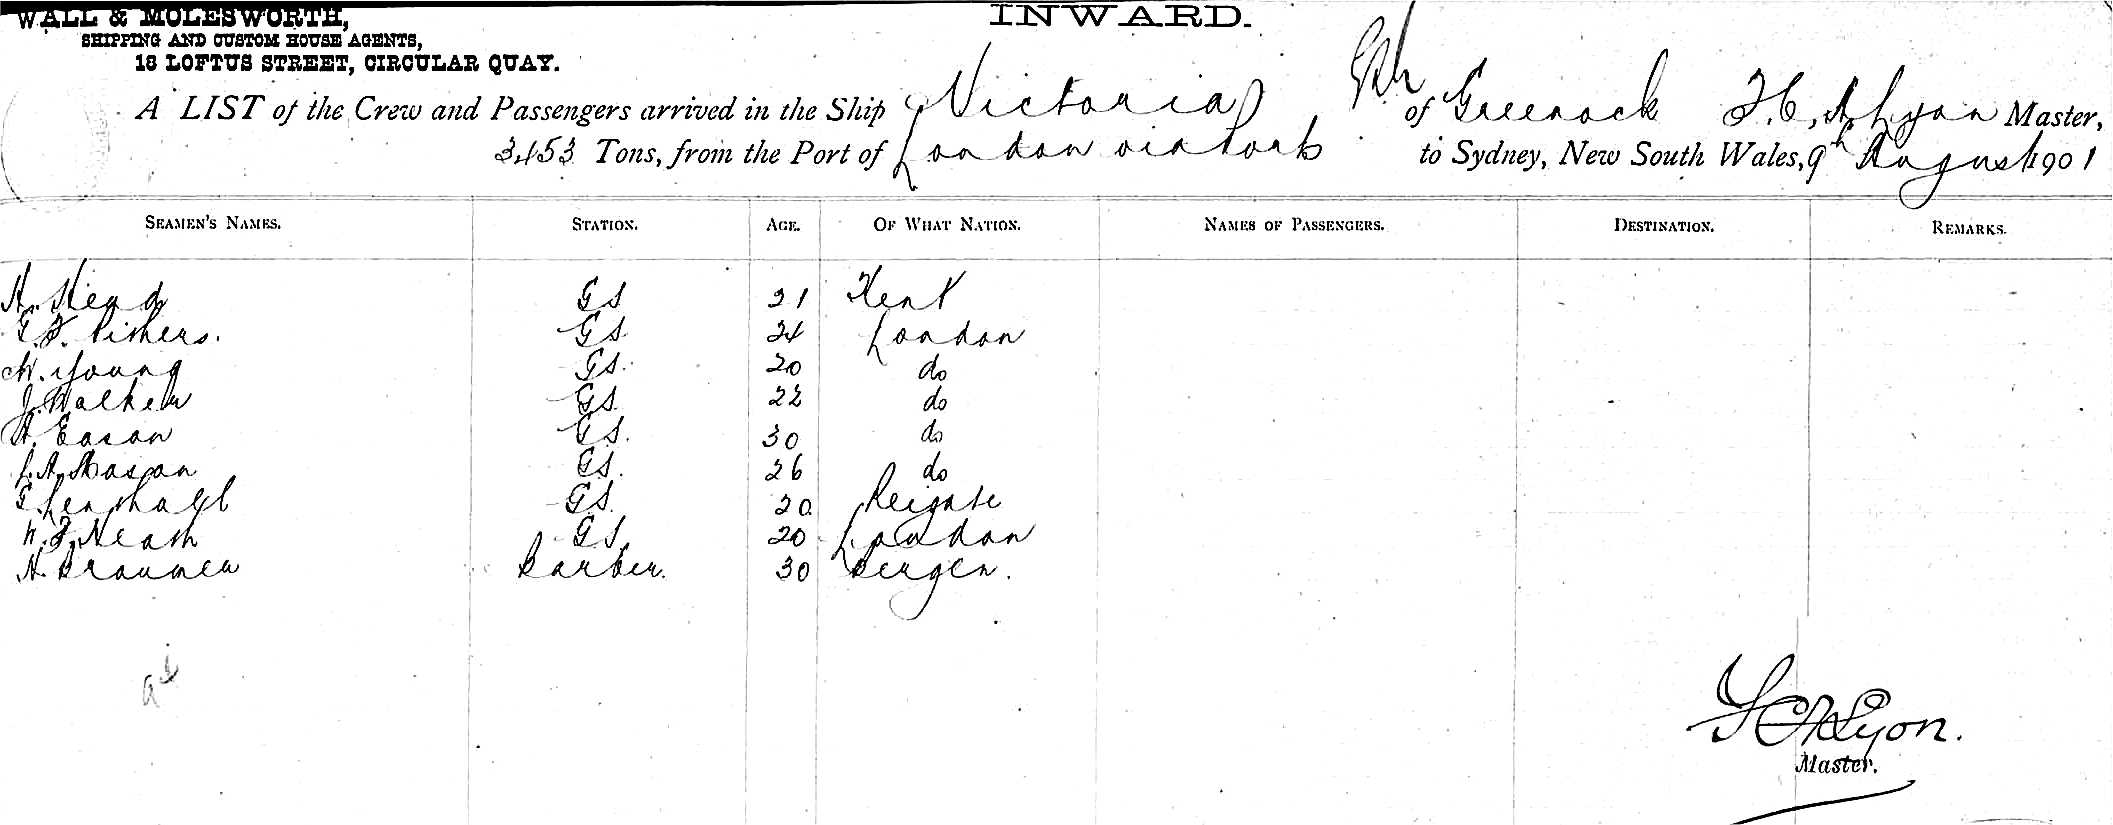 WALL & MOLESWORTH,
SHIPPING AND CUSTOM HOUSE AGENTS,
18 LOFTUS STREET, CIRCULAR QUAY.
INWARD.
A LIST of the Crew and Passengers arrived in the Ship Victoria of Greenock F. C. A. Lyon Master,
3453 Tons, from the Port of London via Ports to Sydney, New South Wales, 9th August 1901
SEAMEN'S NAMES. STATION. AGE. OF WHAT NATION. NAMES OF PASSENGERS. DESTINATION. REMARKS.
A. Head GS 21 Kent
G. F. GS 24 London
W. Young GS. 20 do
J. Walker GS 22 do
A. Eason GS. 30 do
L. A. Mason GS. 26 do
G. GS. 20 Reigate
W. F. Heath GS 20 London
A. Barber. 30 Bergen.
F C A Lyon.
Master.